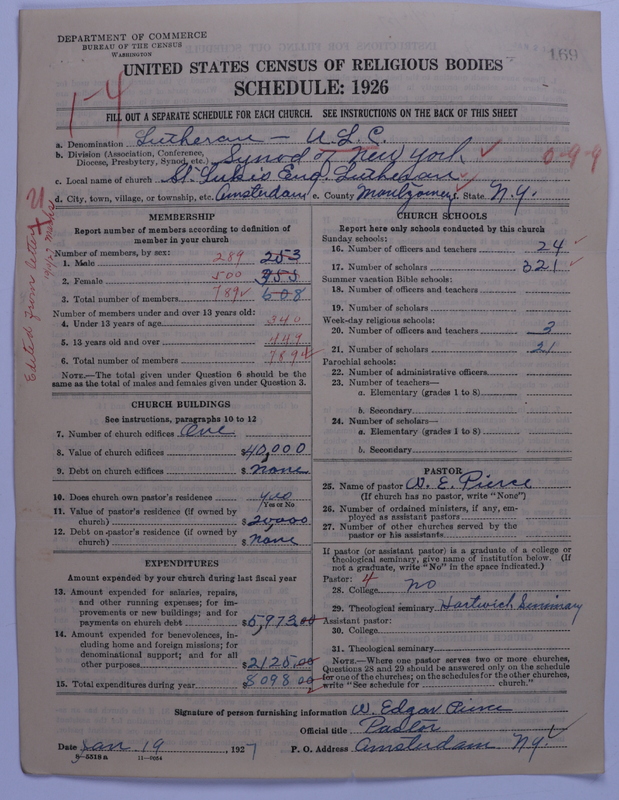 DEPARTMENT OF COMMERCE
BUREAU OF THE CENSUS
WASHINGTON
169
UNITED STATES CENSUS OF RELIGIOUS BODIES
SCHEDULE: 1926
1-4
FILL OUT A SEPARATE SCHEDULE FOR EACH CHURCH. SEE INSTRUCTIONS ON THE BACK OF THIS SHEET
a. Denomination Lutheran - U.L.C.
b. Division (Association, Conference, Diocese, Presbytery, Synod, etc.) Synod of New York
0-9-9
c. Local name of church St. Luke's Eng. Lutheran
d. City, town, village, or township, etc. Amsterdam e. County Montgomery f. State N.Y.
Edited from letter
MEMBERSHIP
Report number of members according to definition of
member in your church
Number of members, by sex:
1. Male 289 253
2. Female 500
3. Total number of members 789 608
Number of members under and over 13 years old:
4. Under 13 years of age 340
5. 13 years old and over 449
6. Total number of members 789
NOTE.—The total given under Question 6 should be the
same as the total of males and females given under Question 3.
CHURCH BUILDINGS
See instructions, paragraphs 10 to 12
7. Number of church edifices One
8. Value of church edifices $ 40,000
9. Debt on church edifices $ None
10. Does church own pastor's residence yes
Yes or No
11. Value of pastor's residence (if owned by
church) $ 20000
12. Debt on pastor's residence (if owned by
church) $ None
EXPENDITURES
Amount expended by your church during last fiscal year
13. Amount expended for salaries, repairs,
and other running expenses; for im-
provements or new buildings; and for
payments on church debt $ 5,973.00
14. Amount expended for benevolences, in-
cluding home and foreign missions; for
denominational support; and for all
other purposes $ 2125.00
15. Total expenditures during year $ 8098.00
CHURCH SCHOOLS
Report here only schools conducted by this church
Sunday schools:
16. Number of officers and teachers 24
17. Number of scholars 321
Summer vacation Bible schools:
18. Number of officers and teachers
19. Number of scholars
Week-day religious schools:
20. Number of officers and teachers 3
21. Number of scholars 21
Parochial schools:
22. Number of administrative officers
23. Number of teachers—
a. Elementary (grades 1 to 8)
b. Secondary
24. Number of scholars—
a. Elementary (grades 1 to 8)
b. Secondary
PASTOR
25. Name of pastor W. E. Pierce
(If church has no pastor, write "None")
26. Number of ordained ministers, if any, em-
ployed as assistant pastors
27. Number of other churches served by the
pastor or his assistants
If pastor (or assistant pastor) is a graduate of a college or
theological seminary, give name of institution below. (If
not a graduate, write "No" in the space indicated.)
Pastor: 4
28. College No
29. Theological seminary Hartwick Seminary
Assistant pastor:
30. College
31. Theological seminary
NOTE.—Where one pastor serves two or more churches,
Questions 28 and 29 should be answered only on the schedule
for one of the churches; on the schedules for the other churches,
write "See schedule for church."
Signature of person furnishing information W. Edgar Pierce
Official title Pastor
Date Jan 19, 1927 P. O. Address Amsterdam N.Y.
8-5518a 11-9054